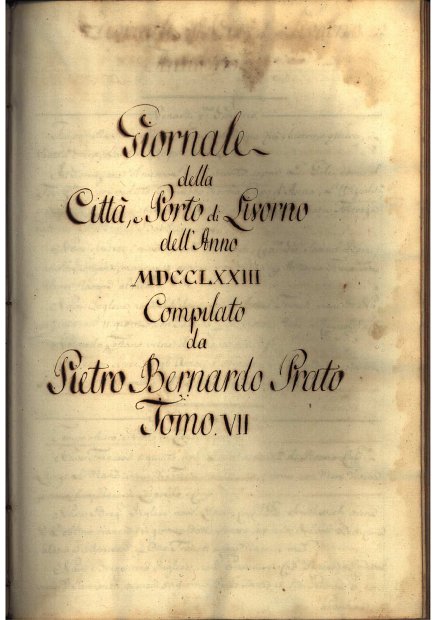 Giornale
della
Città, e Porto di Livorno
dell'Anno
MDCCLXXIII
Compilato
da
Pietro Bernardo Prato
Tomo. VII